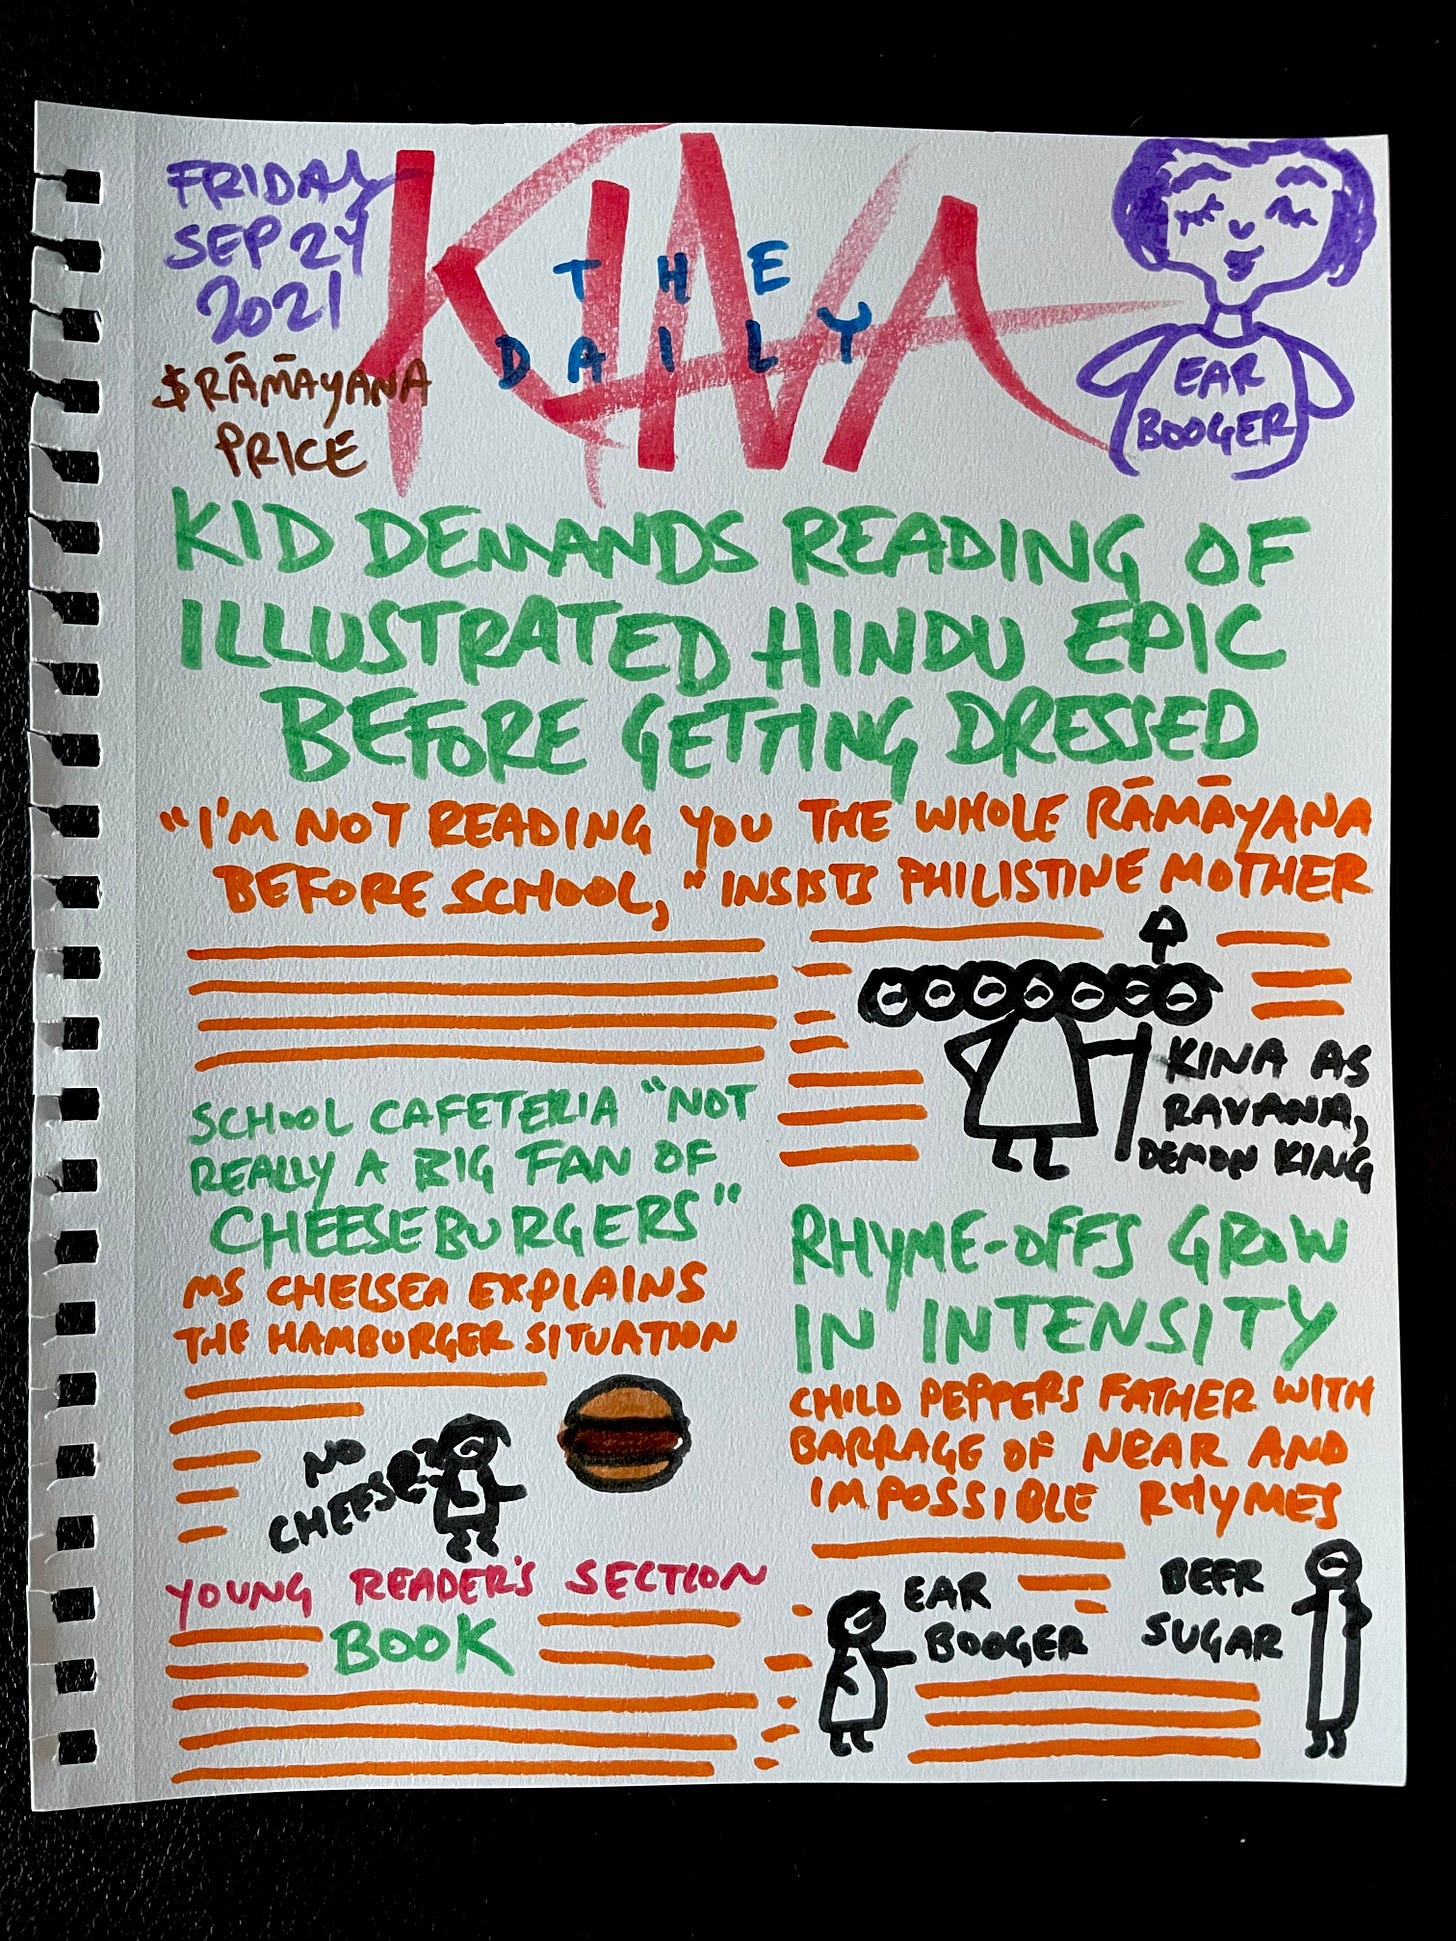 FRIDAY
SEP 24
2021
$RĀMĀYANA
PRICE
THE
DAILY
KINA
EAR
BOOGER
KID DEMANDS READING OF
ILLUSTRATED HINDU EPIC
BEFORE GETTING DRESSED
"I'M NOT READING YOU THE WHOLE RĀMĀYANA
BEFORE SCHOOL," INSISTS PHILISTINE MOTHER
KINA AS
RAVANA,
DEMON KING
SCHOOL CAFETERIA "NOT
REALLY A BIG FAN OF
CHEESEBURGERS"
MS CHELSEA EXPLAINS
THE HAMBURGER SITUATION
NO
CHEESE?
YOUNG READER'S SECTION
BOOK
RHYME-OFFS GROW
IN INTENSITY
CHILD PEPPERS FATHER WITH
BARRAGE OF NEAR AND
IMPOSSIBLE RHYMES
EAR
BOOGER
BEER
SUGAR